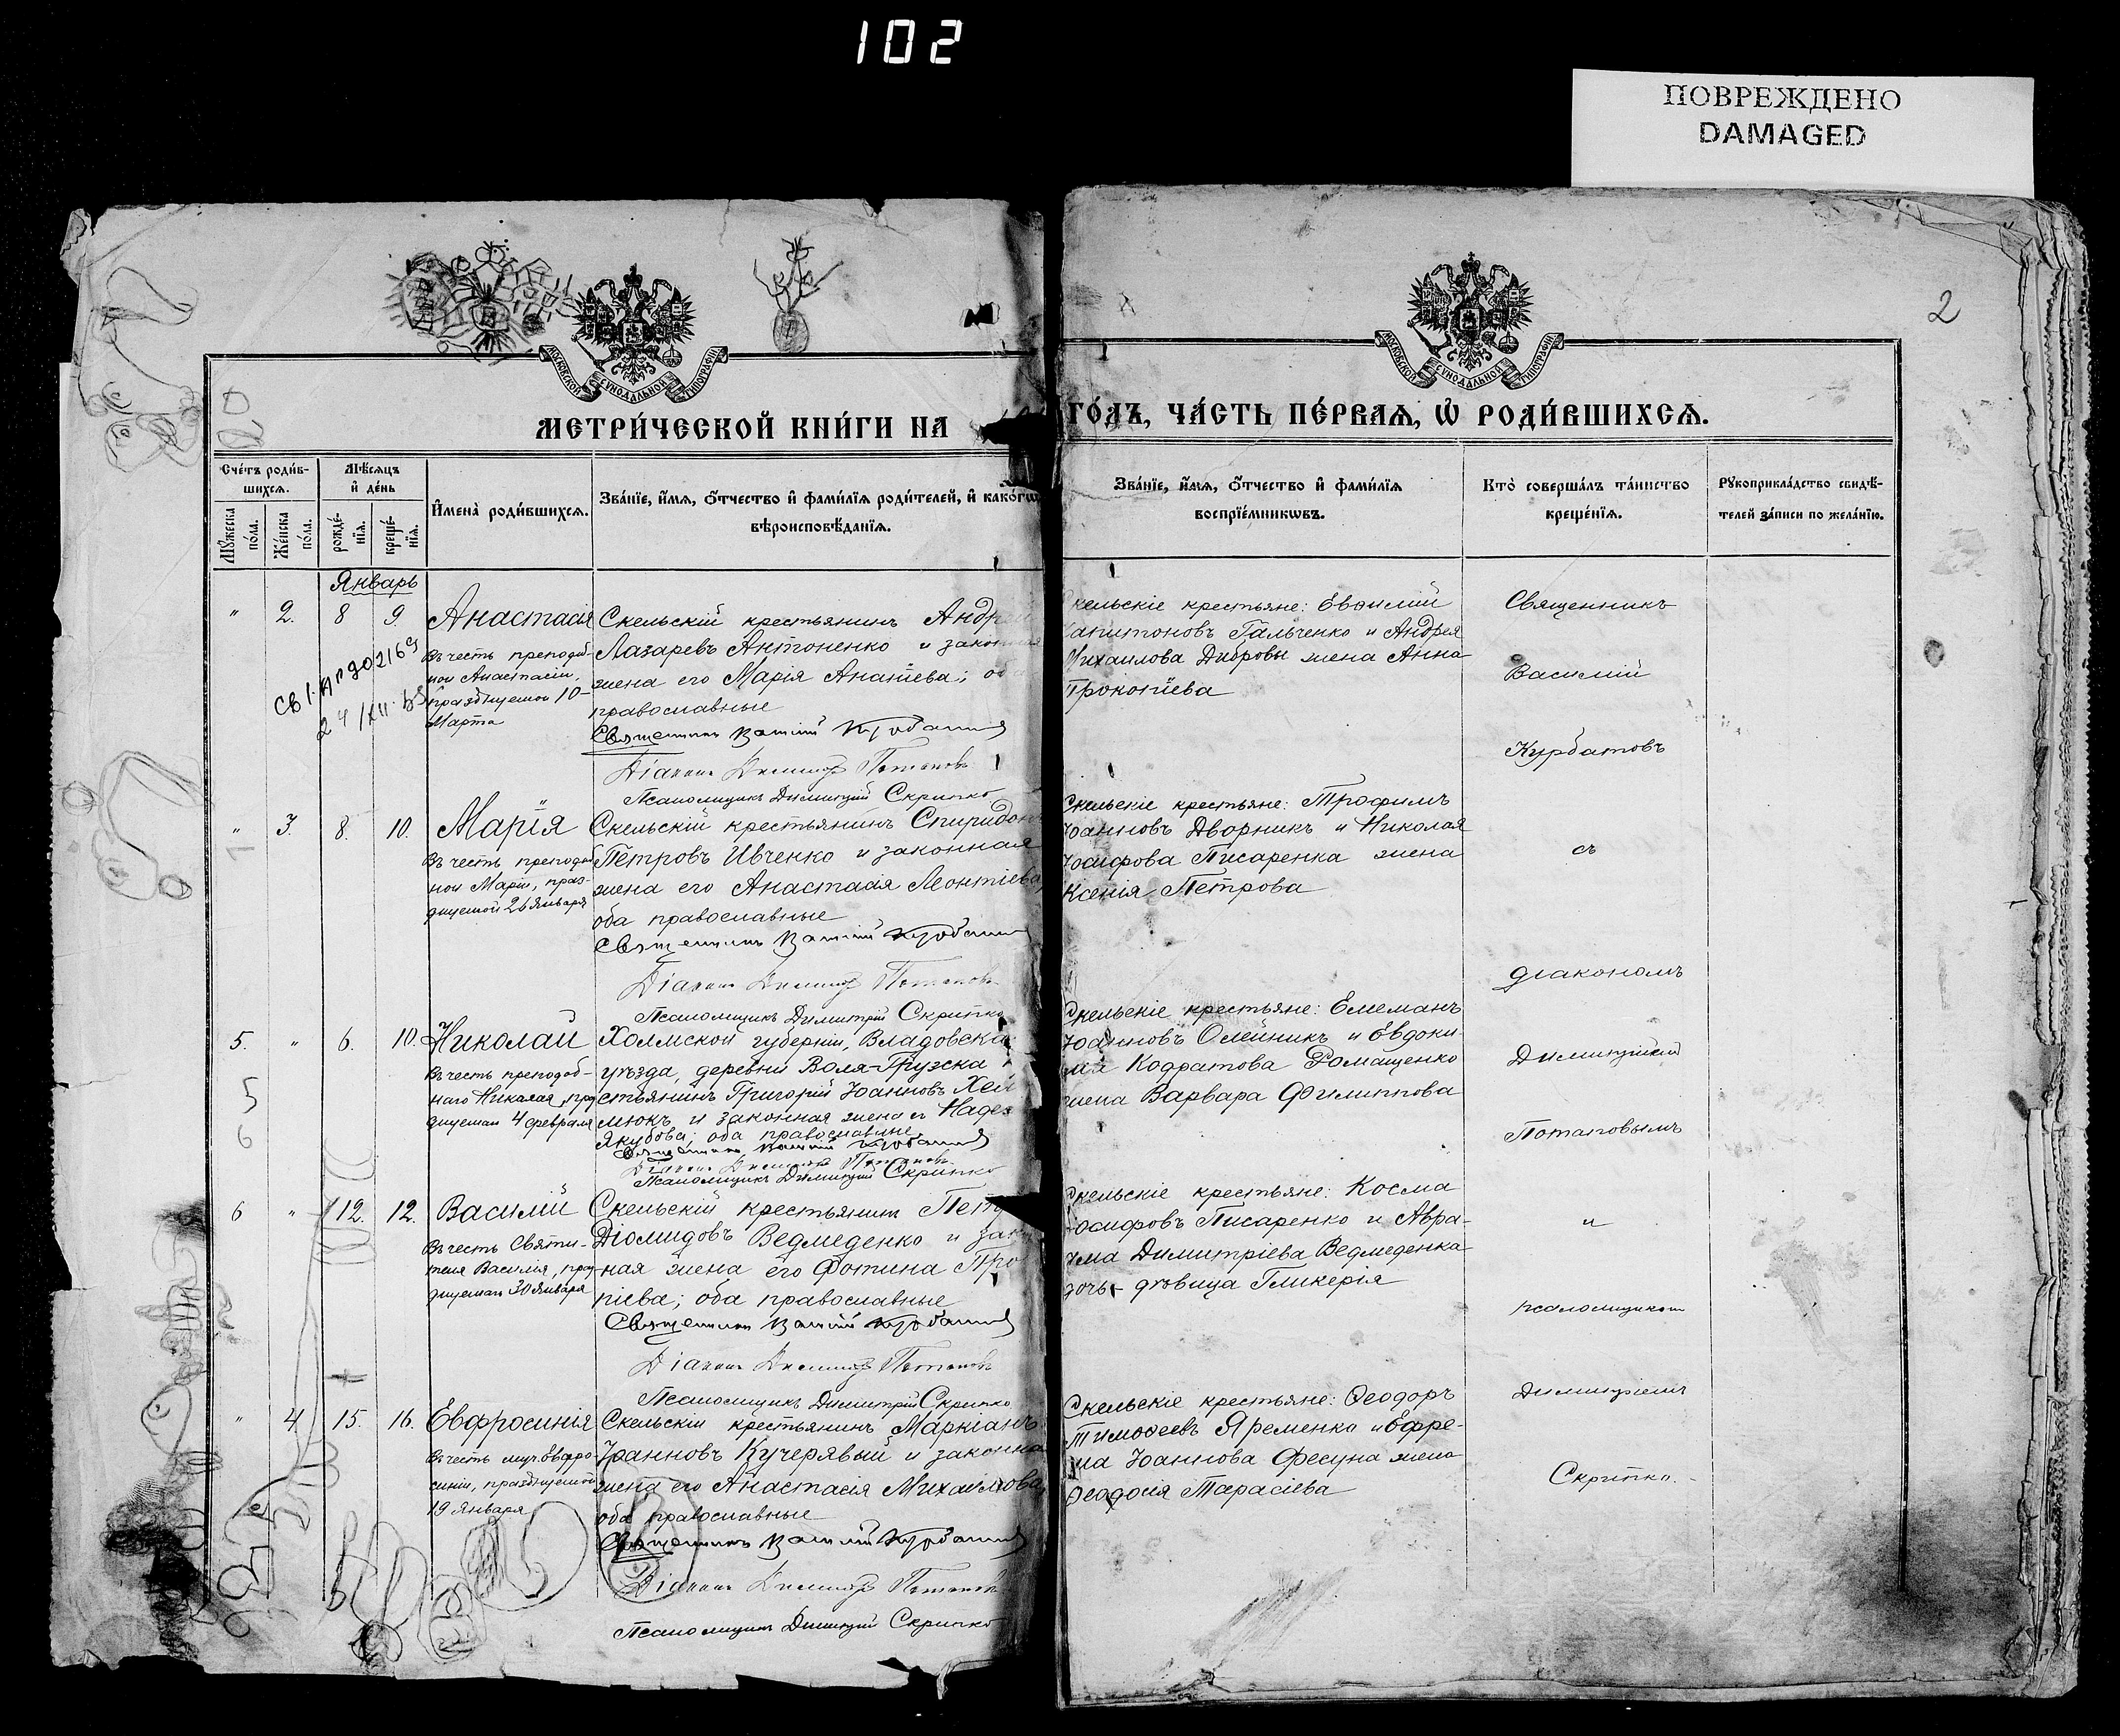 102
ПОВРЕЖДЕНО
DAMAGED
2
МОСКОВСКОЙ СѴНОДАЛЬНОЙ ТИПОГРАФІИ
МОСКОВСКОЙ СѴНОДАЛЬНОЙ ТИПОГРАФІИ
МЕТРИ́ЧЕСКОЙ КНИ́ГИ НА ГО́ДЪ, ЧА́СТЬ ПЕ́РВАЯ, Ѡ҆ РОДИ́ВШИХСЯ.
Сче́тъ роди́в-
шихся.
Мѣ́сяцъ
и҆ де́нь
Мꙋ́жеска по́ла.
Же́нска по́ла.
рожде́-
нїя.
креще́-
нїя.
И҆мена̀ роди́вшихся.
Зва́нїе, и҆́мя, ѻ҆́тчество и҆ фами́лїя роди́телей, и҆ како́гѡ
вѣроисповѣ́данїя.
Зва́нїе, и҆́мя, ѻ҆́тчество и҆ фами́лїя
воспрїе́мникѡвъ.
Кто̀ соверша́лъ та́инство
креще́нїя.
Рꙋкоприкла́дство свидѣ́-
телей за́писи по жела́нїю.
Январь
" 2. 8 9 Анастасія
Въ честь преподоб-
ной Анастасіи,
празднуемой 10-
Марта
Скельскій крестьянинъ Андрей
Лазаревъ Антоненко и законная
жена его Марія Ананіева; оба
православные
Священникъ Василій Курбатовъ
Діаконъ Димитрій Потаповъ
Псаломщикъ Димитрій Скрипко
Скельскіе крестьяне: Евѳимій
Капитоновъ Гальченко и Андрея
Михаилова Дибровы жена Анна
Прокопіева
" 3. 8. 10. Марія
Въ честь преподоб
ной Маріи, праз-
днуемой 26 Января
Скельскій крестьянинъ Спиридонъ
Петровъ Ивченко и законная
жена его Анастасія Леонтіева,
оба православные
Священникъ Василій Курбатовъ
Діаконъ Димитрій Потаповъ
Псаломщикъ Димитрій Скрипко
Скельскіе крестьяне: Трофимъ
Іоанновъ Дворникъ и Николая
Іосифова Писаренка жена
Ксенія Петрова
5. " 6. 10. Николай
Въ честь преподоб-
наго Николая, праз
днуемаго 4 февраля
Холмской губерніи, Владовска
уѣзда, деревни Воля-Грузска
стьянинъ Григорій Іоанновъ Хей
люкъ и законная жена его Надеж
Якубова; оба православные
Священникъ Василій Курбатовъ
Діаконъ Димитрій Потаповъ
Псаломщикъ Димитрій Скрипко
Скельскіе крестьяне: Емеліанъ
Іоанновъ Олейникъ и Евдоки-
ма Кодратова Ромащенко
жена Варвара Филиппова
5
6
6 " 12. 12. Василій
Въ честь Святи-
теля Василія, праз
днуемаго 30 Января
Скельскій крестьянинъ Петръ
Діомидовъ Ведмеденко и закон
ная жена его Фотина Про
піева; оба православные
Священникъ Василій Курбатовъ
Діаконъ Димитрій Потаповъ
Псаломщикъ Димитрій Скрипко
Скельскіе крестьяне: Косма
Іосифовъ Писаренко и Авра-
ама Димитріева Ведмеденка
дочь дѣвица Гликерія
" 4 15. 16. Евфросинія
Въ честь муч. Евфро-
синіи, празднуемой
19 Января
Скельскій крестьянинъ Маркіанъ
Іоанновъ Кучерявый и законная
жена его Анастасія Михайлова,
оба православные
Священникъ Василій Курбатовъ
Діаконъ Димитрій Потаповъ
Псаломщикъ Димитрій Скрипко
Скельскіе крестьяне: Ѳеодоръ
Тимоѳеевъ Яременко и Ефре-
ма Іоаннова Фесуна жена
Ѳеодосія Тарасіева
Священникъ
Василій
Курбатовъ
съ
діакономъ
Димитріемъ
Потаповымъ
и
псаломщикомъ
Димитріемъ
Скрипко.